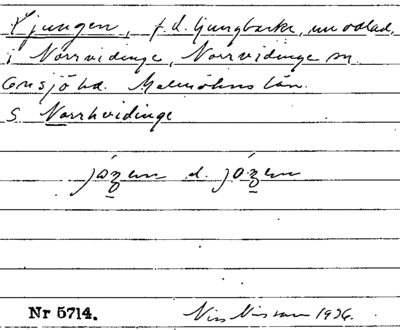 Ljungen, f.d. ljungbacke, nu odlad,
i Norrvidinge, Norrvidinge sn.
Onsjö hd. Malmöhus län.
S Norrhvidinge
józen d. józen
Nr 5714. 1936.